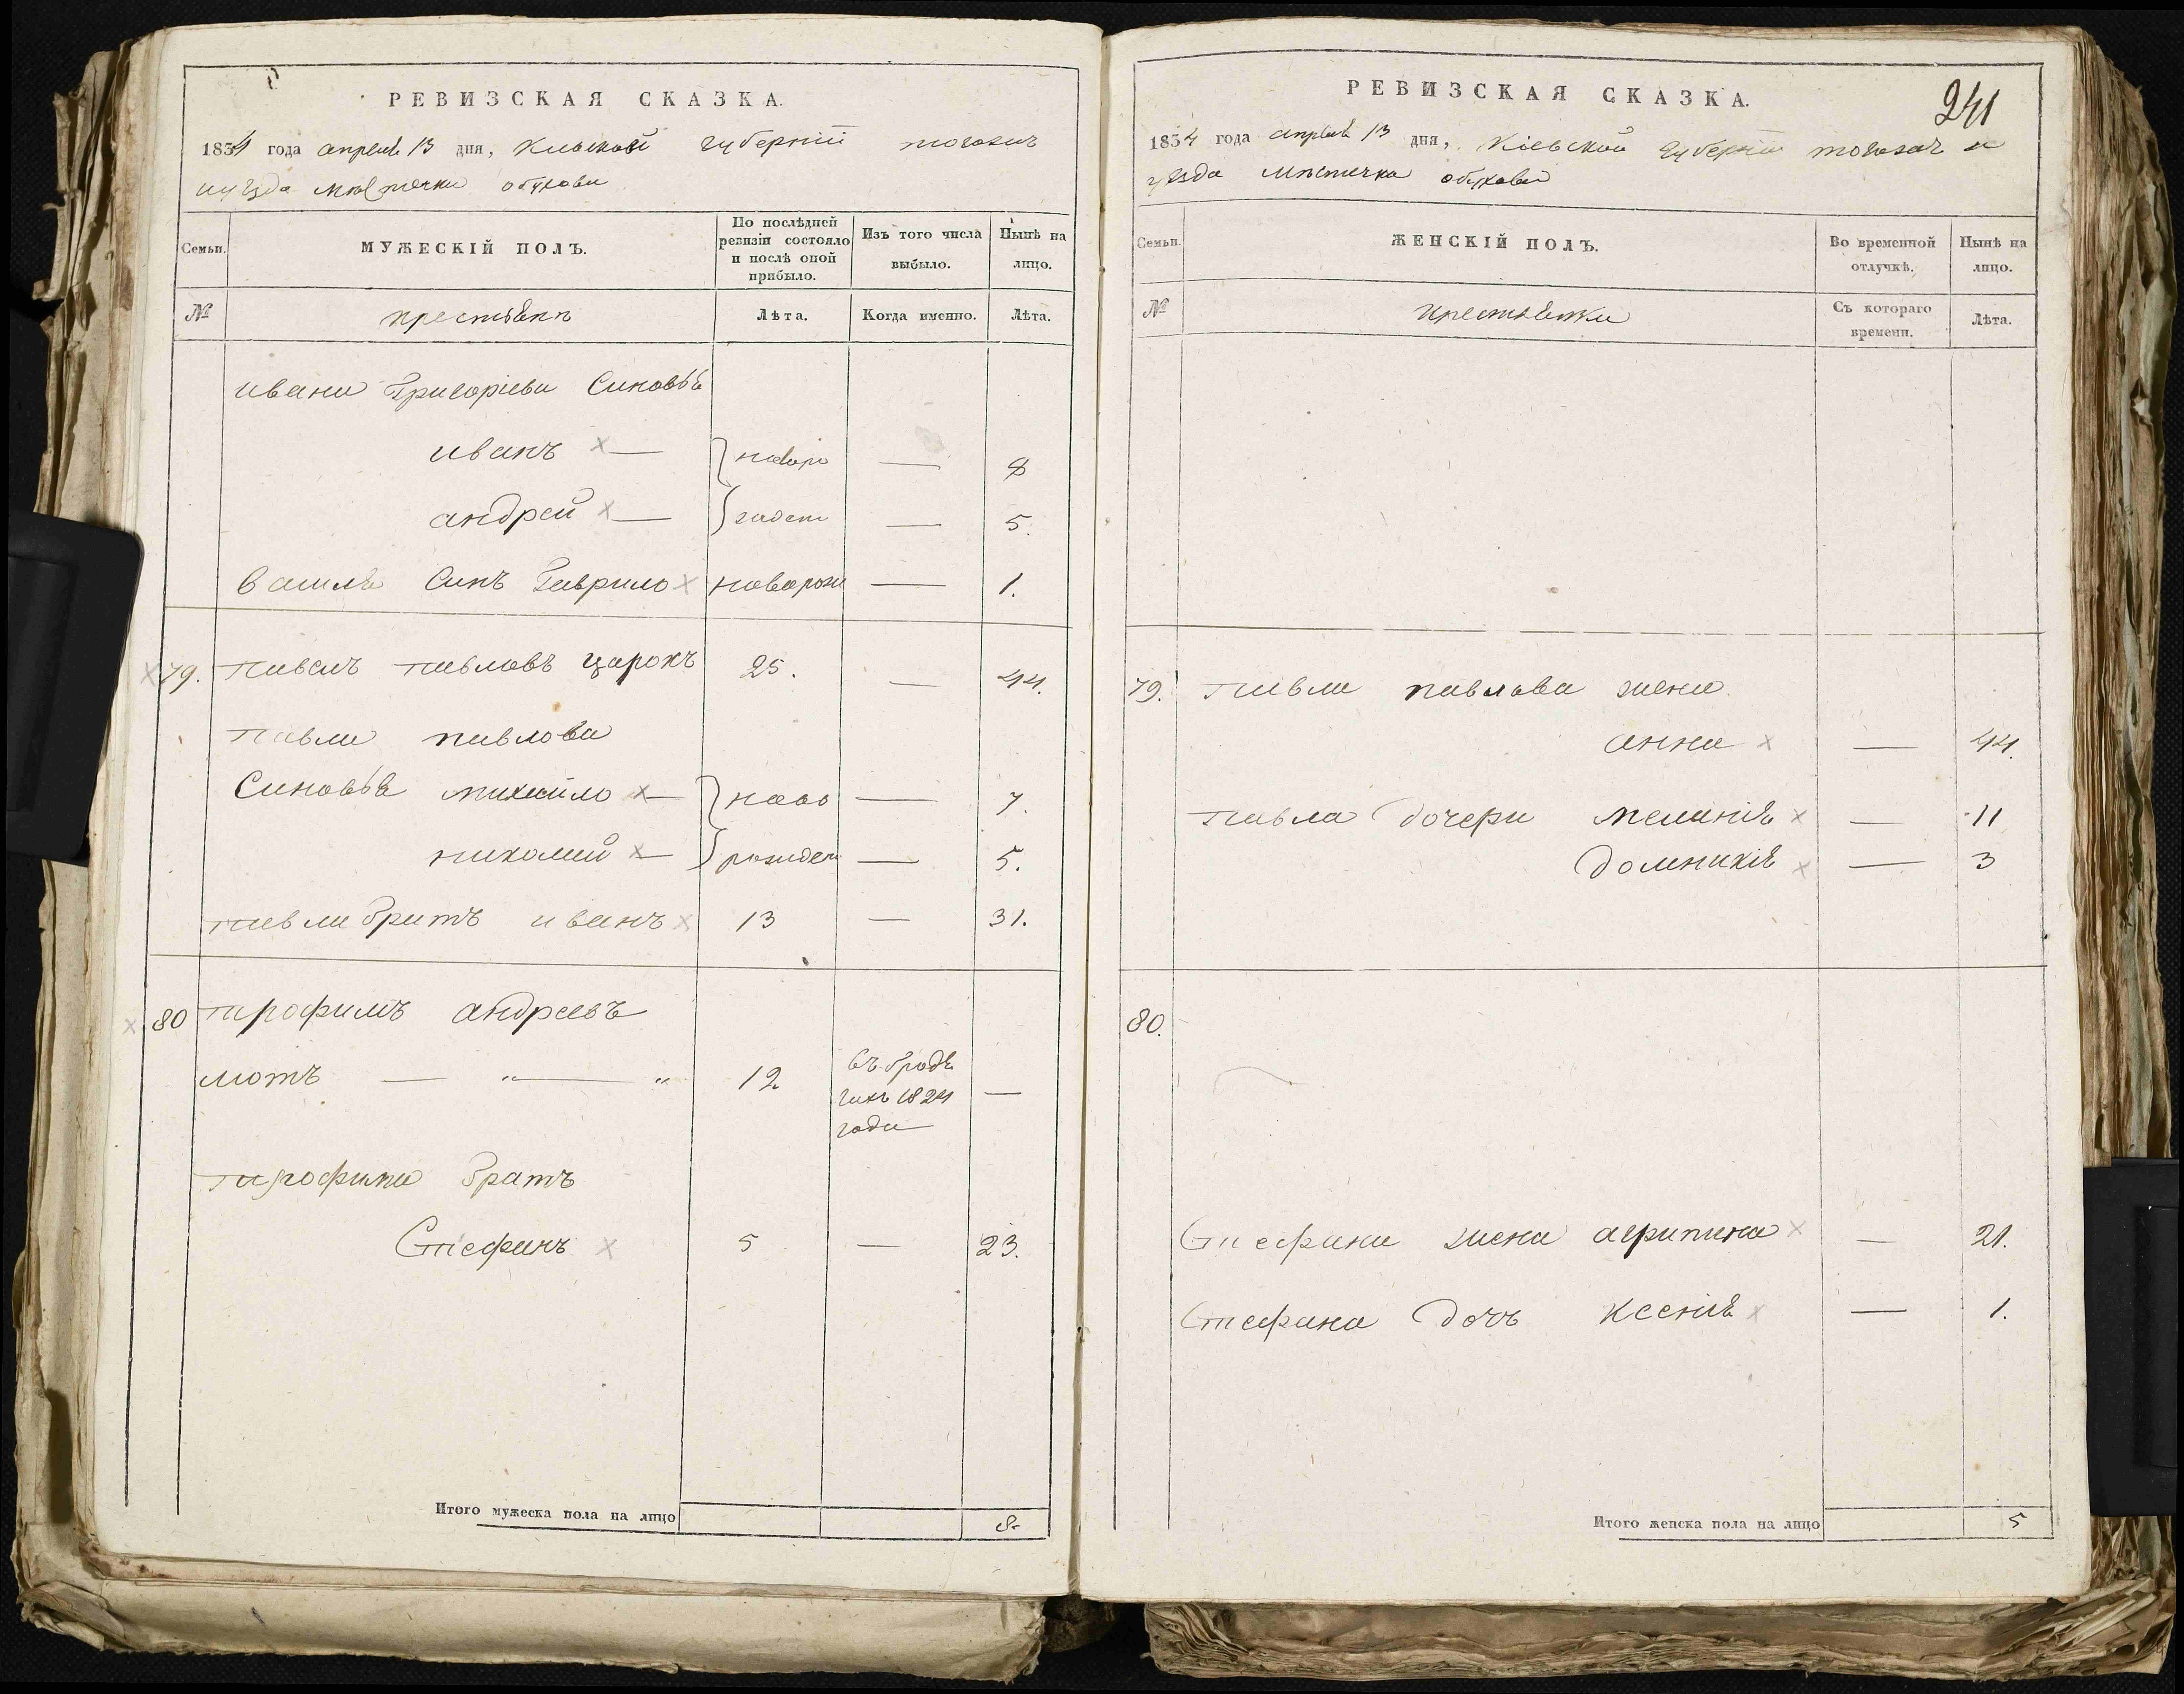 РЕВИЗСКАЯ СКАЗКА.
1834 года апреля 13 дня, Киевской губернии тогожъ
и уезда местечка обухова
Семьи. МУЖЕСКІЙ ПОЛЪ. По послѣдней ревизіи состояло и послѣ оной прибыло. Изъ того числа выбыло. Нынѣ на лицо.
№ крестьянъ Лѣта. Когда именно. Лѣта.
ивана Григоріева Синовья
иванъ × —ново — 8
андрей × — рожден — 5.
василя Синъ Гаврило × новорож — 1.
× 79. Павелъ павловъ царокъ 25. — 44.
Павла павлова
Синовья михайло × — ново — 7.
николай × — рожден — 5.
павла братъ иванъ × 13 — 31.
× 80 трофимъ андреевъ
лютъ — " — " 12 въ бродя —
гахъ 1824
года
трофима братъ
Стефанъ × 5 — 23.
Итого мужеска пола на лицо 8-
241
РЕВИЗСКАЯ СКАЗКА.
1834 года апреля 13 дня, Кіевской губерніи тогожъ и
уезда мѣстечка обухова
Семьи. ЖЕНСКІЙ ПОЛЪ. Во временной отлучкѣ. Нынѣ на лицо.
№ крестьянки Съ котораго времени. Лѣта.
79. павла павлова жена
анна × — 44.
Павла дочери меланія × — 11
домникія × — 3
80.
Стефана жена агрипина × — 21.
Стефана дочь Ксенія × — 1.
Итого женска пола на лицо 5